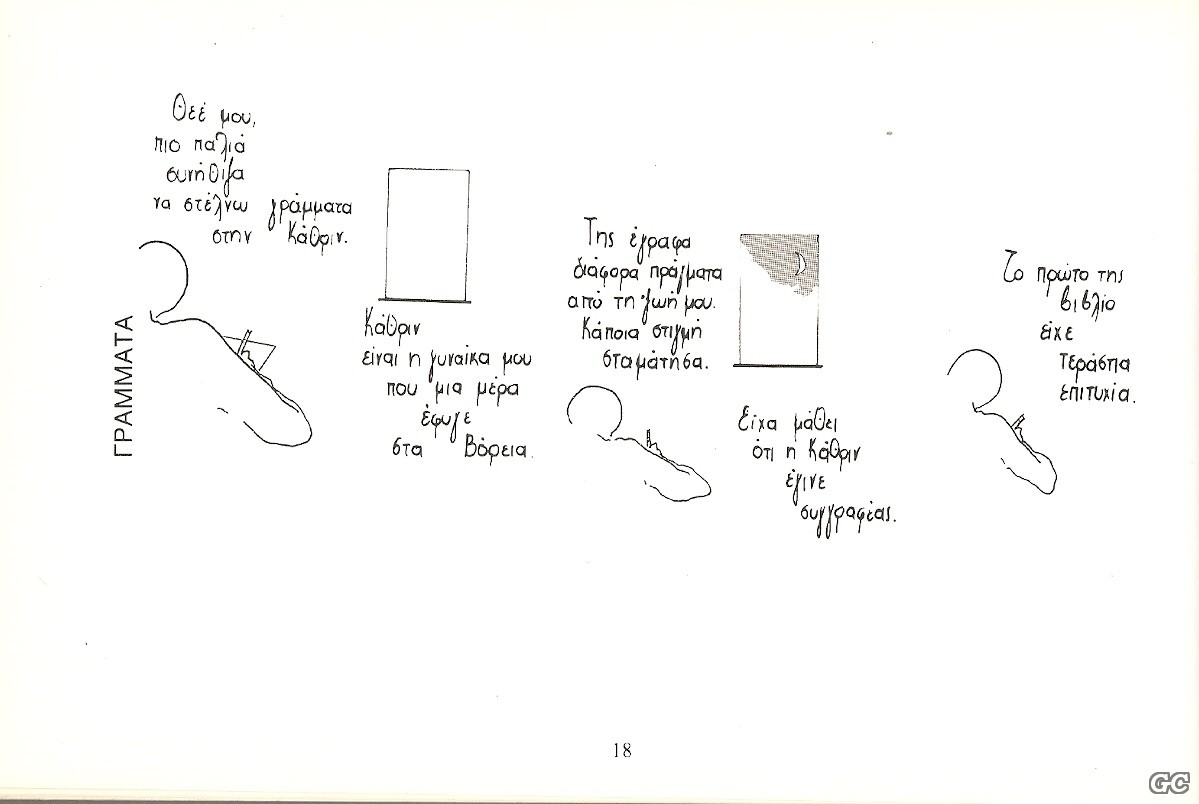 ΓΡΑΜΜΑΤΑ
Θεέ μου,
πιο παλιά
συνήθιζα
να στέλνω γράμματα
στην Κάθριν.
Κάθριν
είναι η γυναίκα μου
που μια μέρα
έφυγε
στα Βόρεια.
Της έγραφα
διάφορα πράγματα
από τη ζωή μου.
Κάποια στιγμή
σταμάτησα.
Είχα μάθει
ότι η Κάθριν
έγινε
συγγραφέας.
Το πρώτο της
βιβλίο
είχε
τεράστια
επιτυχία.
18
GC